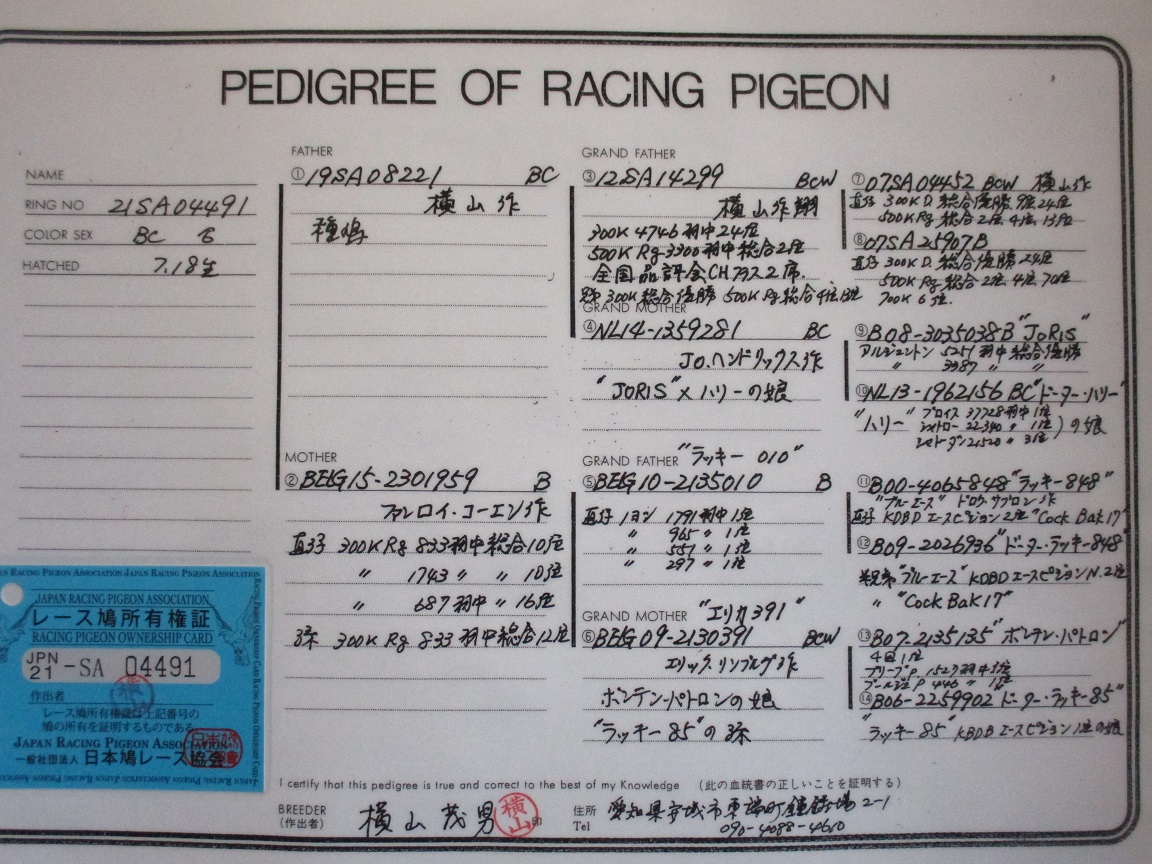 PEDIGREE OF RACING PIGEON
NAME
RING NO 21SA04491
COLOR SEX BC
HATCHED 7.18生
FATHER
① 19SA08221 BC
横山作
種鳩
MOTHER
② BELG15-2301959 B
ファンロイ・コーエン作
直子 300K Rg 833羽中総合10位
〃 1743 〃 〃 10位
〃 687羽中 〃 16位
孫 300K Rg 833羽中総合12位
GRAND FATHER
③ 12SA14299 BCW
横山作翔
300K 4746羽中24位
500K Rg 3300羽中総合2位
全国品評会CHクラス2席.
300K 総合優勝 500K Rg 総合4位13位
GRAND MOTHER
④ NL14-1359281 BC
JO.ヘンドリックス作
"JORIS"×ハリーの娘
GRAND FATHER "ラッキー 010"
⑤ BELG10-2135010 B
直子 ノヨン 1791羽中1位
〃 965 〃 1位
〃 557 〃 1位
〃 297 〃 1位
GRAND MOTHER "エリカ391"
⑥ BELG09-2130391 BCW
エリック.リンブルグ作
ボンテン・パトロンの娘
"ラッキー85"の孫
⑦ 07SA04452 BCW 横山作
直子 300K D. 総合優勝. 9位24位
500K Rg 総合2位 4位 13位
⑧ 07SA25907B
直子 300K D. 総合優勝 24位
500K Rg 総合2位 4位 70位
700K 6位.
⑨ B08-3035038B "JORIS"
アルジェントン 5251羽中総合優勝
〃 3987 〃 〃
⑩ NL13-1962156 BC "ドーター・ハリー"
"ハリー" ブロイス 37728羽中1位
シャトロー 22340 〃 1位 )の娘
シャトーダン 21520 〃 3位
⑪ B00-4065848 "ラッキー848"
"ブルーエース" ドロウ.サブロン作
直子 KDBD エースピジョン2位 "Cock Bak 17"
⑫ B09-2026936 "ドーター・ラッキー848"
"ブルーエース" KDBD エースピジョンN.2位
〃 "Cock Bak 17"
⑬ B07-2135135 "ボンテン・パトロン"
4回1位
ブリーブP 1527羽中1位
ブールジュP 446 〃 1位
⑭ B06-2259902 "ドーター・ラッキー85"
"ラッキー85" KBDB エースピジョン1位の娘
JAPAN RACING PIGEON ASSOCIATION JAPAN RACING PIGEON ASSOCIATION
JAPAN RACING PIGEON ASSOCIATION
レース鳩所有権証
RACING PIGEON OWNERSHIP CARD
JPN 21 -SA 04491
作出者
レース鳩所有権証は上記番号の
鳩の所有を証明するものである
JAPAN RACING PIGEON ASSOCIATION
一般社団法人 日本鳩レース協会
I certify that this pedigree is true and correct to the best of my Knowledge (此の血統書の正しいことを証明する)
BREEDER
(作出者) 横山茂男 横山 印
住所 愛知県安城市東端町鐘鋳場2-1
Tel 090-4088-4610